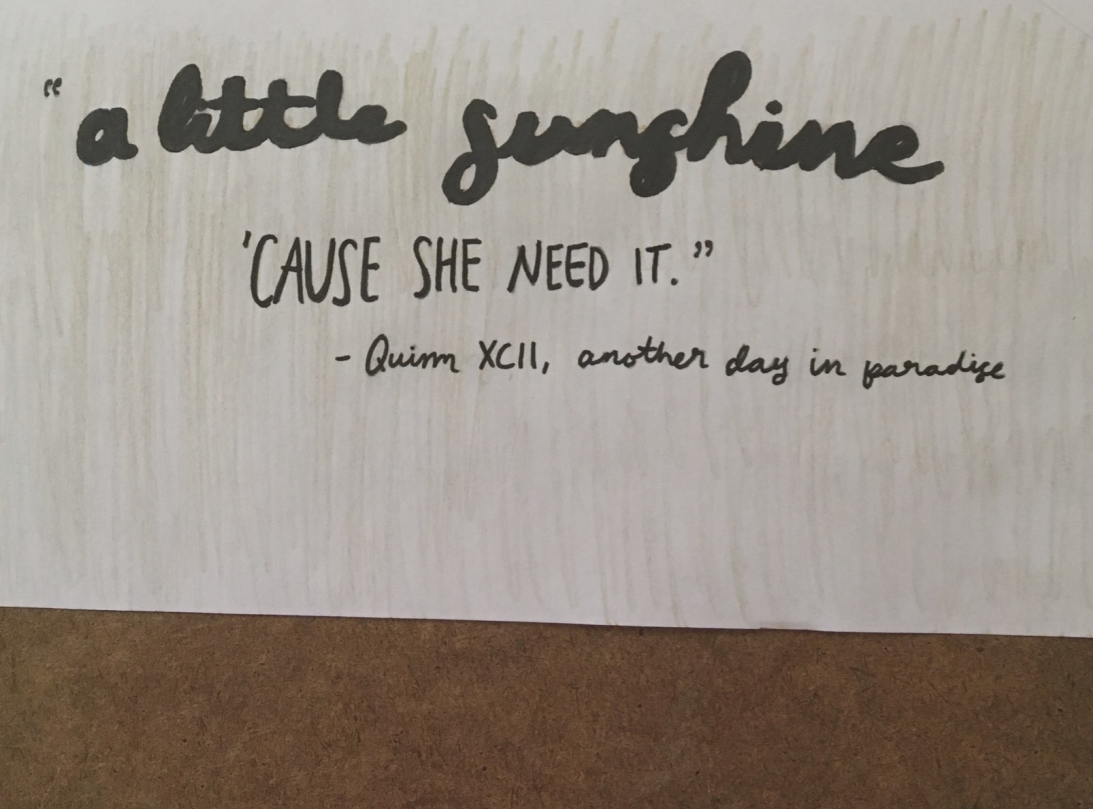 "a little sunshine
'CAUSE SHE NEED IT."
- Quinn XCII, another day in paradise